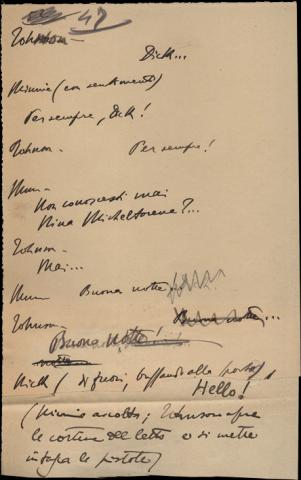 47
Johnson –
Dick...
Minnie (con sentimento)
Per sempre, Dick!
Johnson – Per sempre!
Minn –
Non conoscesti mai
Nina Micheltorena?...
Johnson –
Mai...
Minn Buona notte...
Johnson – Buona notte...
Buona notte!
Nick (di fuori, bussando alla porta)
Hello!
(Minnie ascolta; Johnson apre
le cortine del letto e si mette
in tasca le pistole)